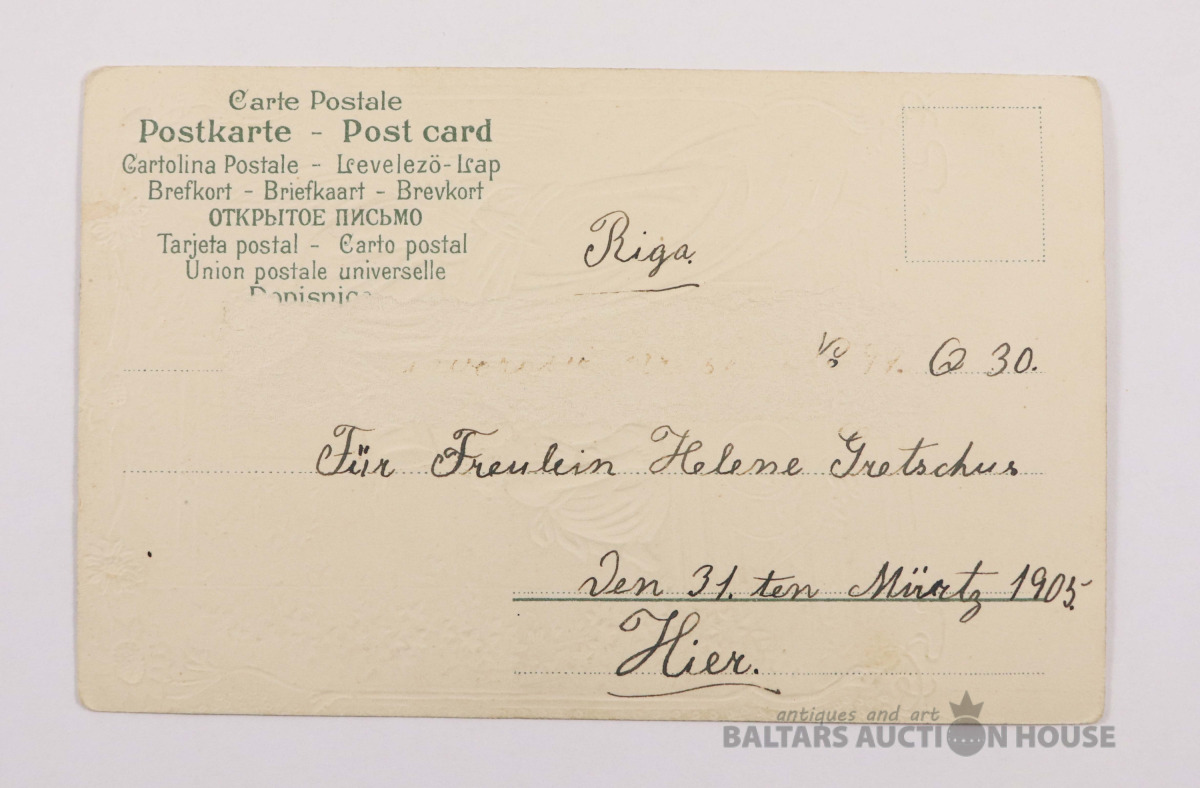 Carte Postale
Postkarte - Post card
Cartolina Postale - Levelezö-Lap
Brefkort - Briefkaart - Brevkort
ОТКРЫТОЕ ПИСЬМО
Tarjeta postal - Carto postal
Union postale universelle
Dopisnica
Riga.
30.
Für Freulein Helene Gretschus
Den 31. ten Märtz 1905.
Hier.
antiques and art
BALTARS AUCTION HOUSE